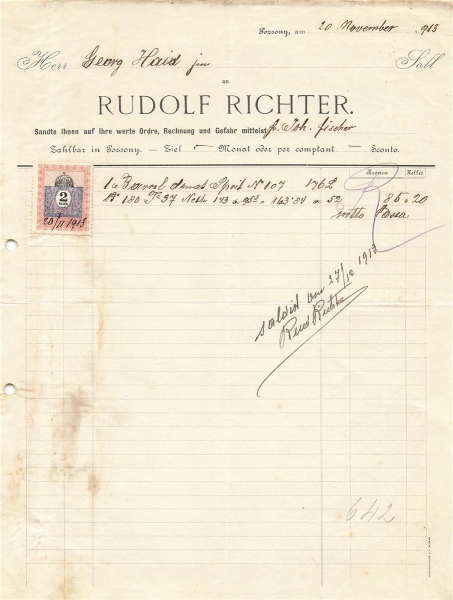 Possony, am 20 November 1913
Herr Georg Haid jun Soll
an
RUDOLF RICHTER.
Sandte Ihnen auf Ihre werte Ordre, Rechnung und Gefahr mittelst Joh. Fischer
Zahlbar in Possony. — Ziel — Monat oder per comptant — Sconto.
Kronen Heller
1 denat Sprit No 107 1762
180 T 37 Netto 143 a 163·84 a 52 85 20
netto Cassa
2
20/11 1913
saldirt am 27/12 1913
Rud Richter
642